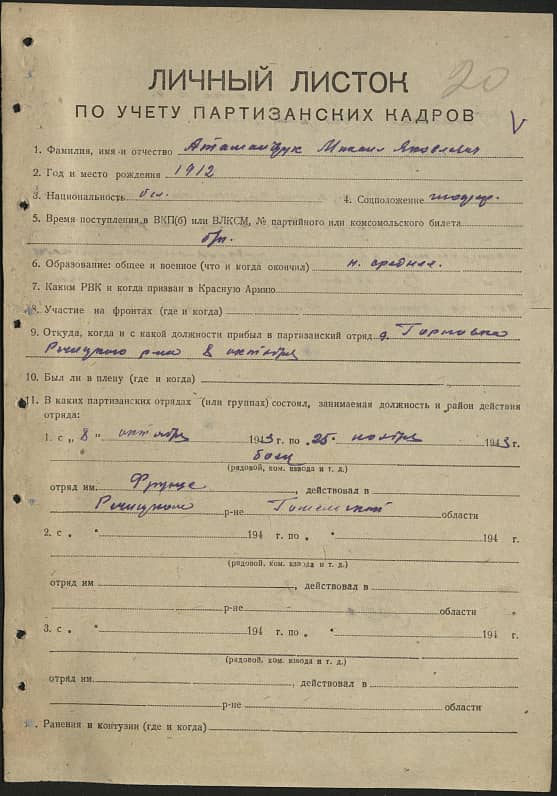 20
ЛИЧНЫЙ ЛИСТОК
ПО УЧЕТУ ПАРТИЗАНСКИХ КАДРОВ
V
1. Фамилия, имя и отчество Михаил Яковлевич
2. Год и место рождения 1912
3. Национальность бел. 4. Соцположение
5. Время поступления в ВКП(б) или ВЛКСМ, № партийного или комсомольского билета
б/п.
6. Образование: общее и военное (что и когда окончил) н. среднее.
7. Каким РВК и когда призван в Красную Армию
8. Участие на фронтах (где и когда)
9. Откуда, когда и с какой должности прибыл в партизанский отряд д.
Речицкого р-на 8 октября
10. Был ли в плену (где и когда)
11. В каких партизанских отрядах (или группах) состоял, занимаемая должность и район действия
отряда:
1. с „ 8 " октября 1943 г. по „ 25 " ноября 1943 г.
боец
(рядовой, ком. взвода и т. д.)
отряд им. Фрунзе, действовал в
Речицком р-не Гомельской области
2. с „ " 194 г. по „ " 194 г.
(рядовой, ком. взвода и т. д.)
отряд им, действовал в
р-не области
3. с „ " 194 г. по „ " 194 г.
(рядовой, ком. взвода и т. д.)
отряд им., действовал в
р-не области
Ранения и контузии (где и когда)